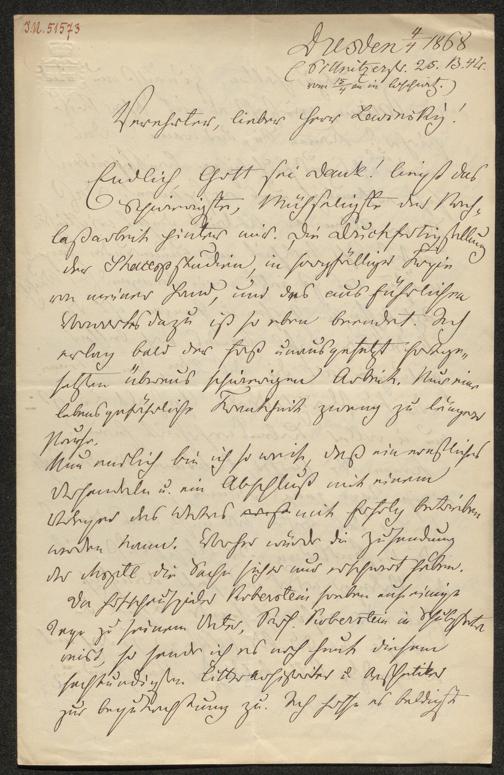 J.N. 51573
Dresden 4/4 1868
(Prießnitzerstr. 25. 13. Etr.
vom 15/4 an in Loschwitz.)
Verehrter, lieber Herr Lewinsky!
Endlich Gott sei Dank! liegt das
Schwierigste, Mühseligste der Nach-
laßarbeit hinter mir. Die Druckfertigstellung
der Shakespstudien, in sorgfältiger Kopie
von meiner Hand, und des ausführlichen
Vorworts dazu ist so eben beendet. Ich
erlag bald der fast unausgesetzt fortge-
setzten überaus schwierigen Arbeit. Nur eine
lebensgefährliche Krankheit zwang zu längerer
Pause.
Nun endlich bin ich so weit, daß ein ernstliches
Verhandeln u. ein Abschluß mit einem
Verleger des Werkes mit Erfolg betrieben
werden kann. Vorher würde die Zusendung
der Mspte die Sache sicher nur erschwert haben.
Da Hofschauspieler Koberstein soeben auf einige
Tage zu seinem Vater, Prof. Koberstein in Schulpforta
reist, so sende ich es noch heut diesem
sachkundigsten Litterarhistoriker u. Aesthetiker
zur Begutachtung zu. Ich hoffe es baldigst